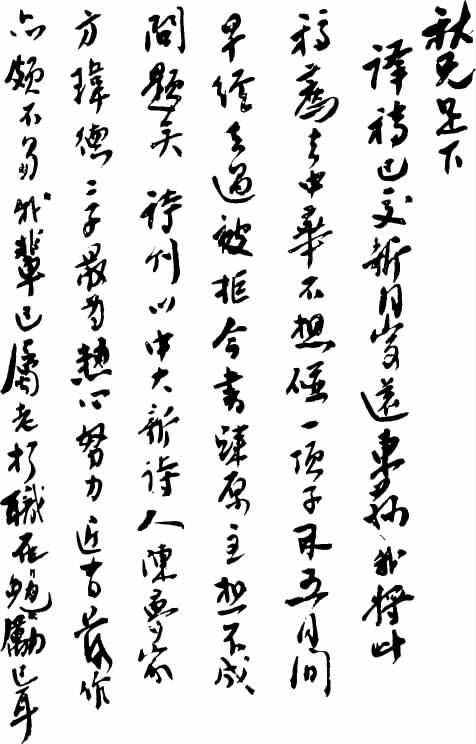 秋兄足下
譯稿已交新月寄還東蓀我將此
稿薦去中華不想碰一頂子五月間
早經去過被拒今書歸原主想不成
問題矣詩刊以中大新詩人陳夢家
方瑋德二子最為熱心努力近有長作
亦頗不易我輩已屬老朽職在勉勵已耳